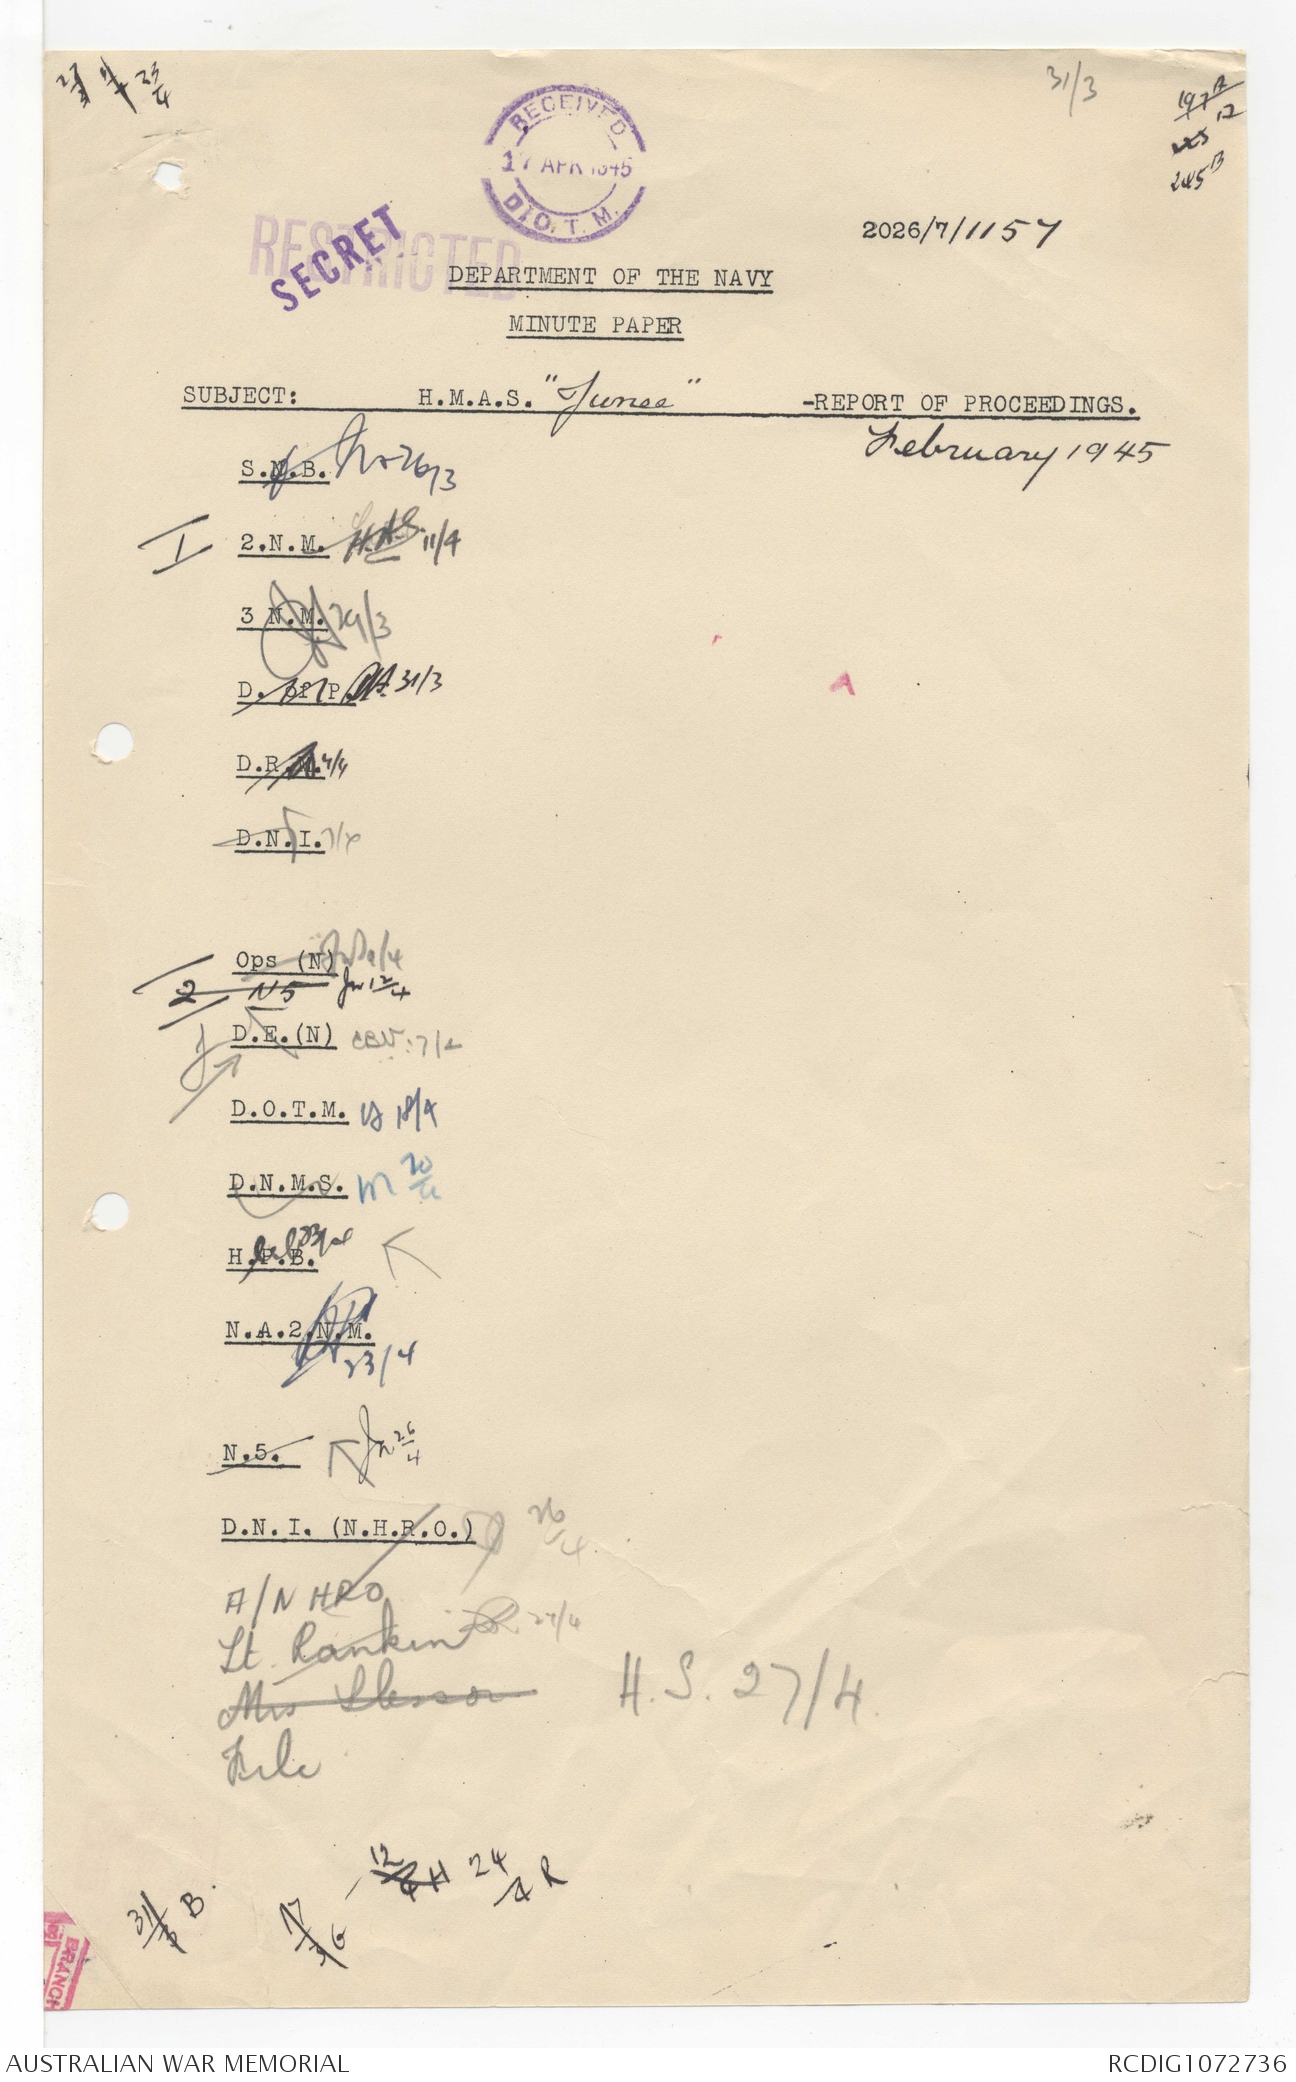 23/4
31/3
RECEIVED
17 APR 1945
D.O.T.M.
RESTRICTED
SECRET
2026/7/1157
DEPARTMENT OF THE NAVY
MINUTE PAPER
SUBJECT: H.M.A.S. "Junee" -REPORT OF PROCEEDINGS.
February 1945
S.N.B. 26/3
I 2.N.M. 11/4
3 N.M. 29/3
D. of P. 31/3
D.R.M. 4/4
D.N.I. 7/4
Ops (N) 9/4
2 N5 12/4
D.E.(N) CBV: 7/4
D.O.T.M. 18/4
D.N.M.S. 20/4
H.P.B.
N.A.2.N.M.
23/4
N.5. 26/4
D.N.I. (N.H.R.O.) 26/4
A/N HRO
Lt. Rankin 27/4
Mrs Slessor H.S. 27/4.
File
12 24/4 R
31/3 B.
BRANCH
AUSTRALIAN WAR MEMORIAL RCDIG1072736